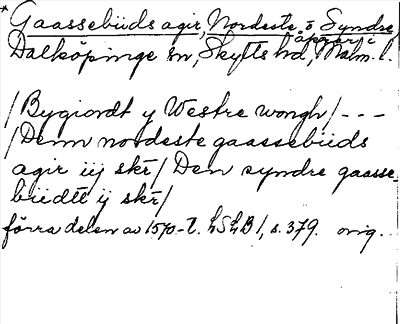 * Gaassebüds agir, Nordeste o Syndre
åkrar i
Dalköpinge sn, Skytts hd, Malm. l.
/Bygiordt y Westre wongh/ ---
/Denn nordeste gaassebüds
agir iij skr/ Den syndre gaasse-
büdtt ij skr/
förra delen av 1570-t. LSLB 1, s. 379. orig.